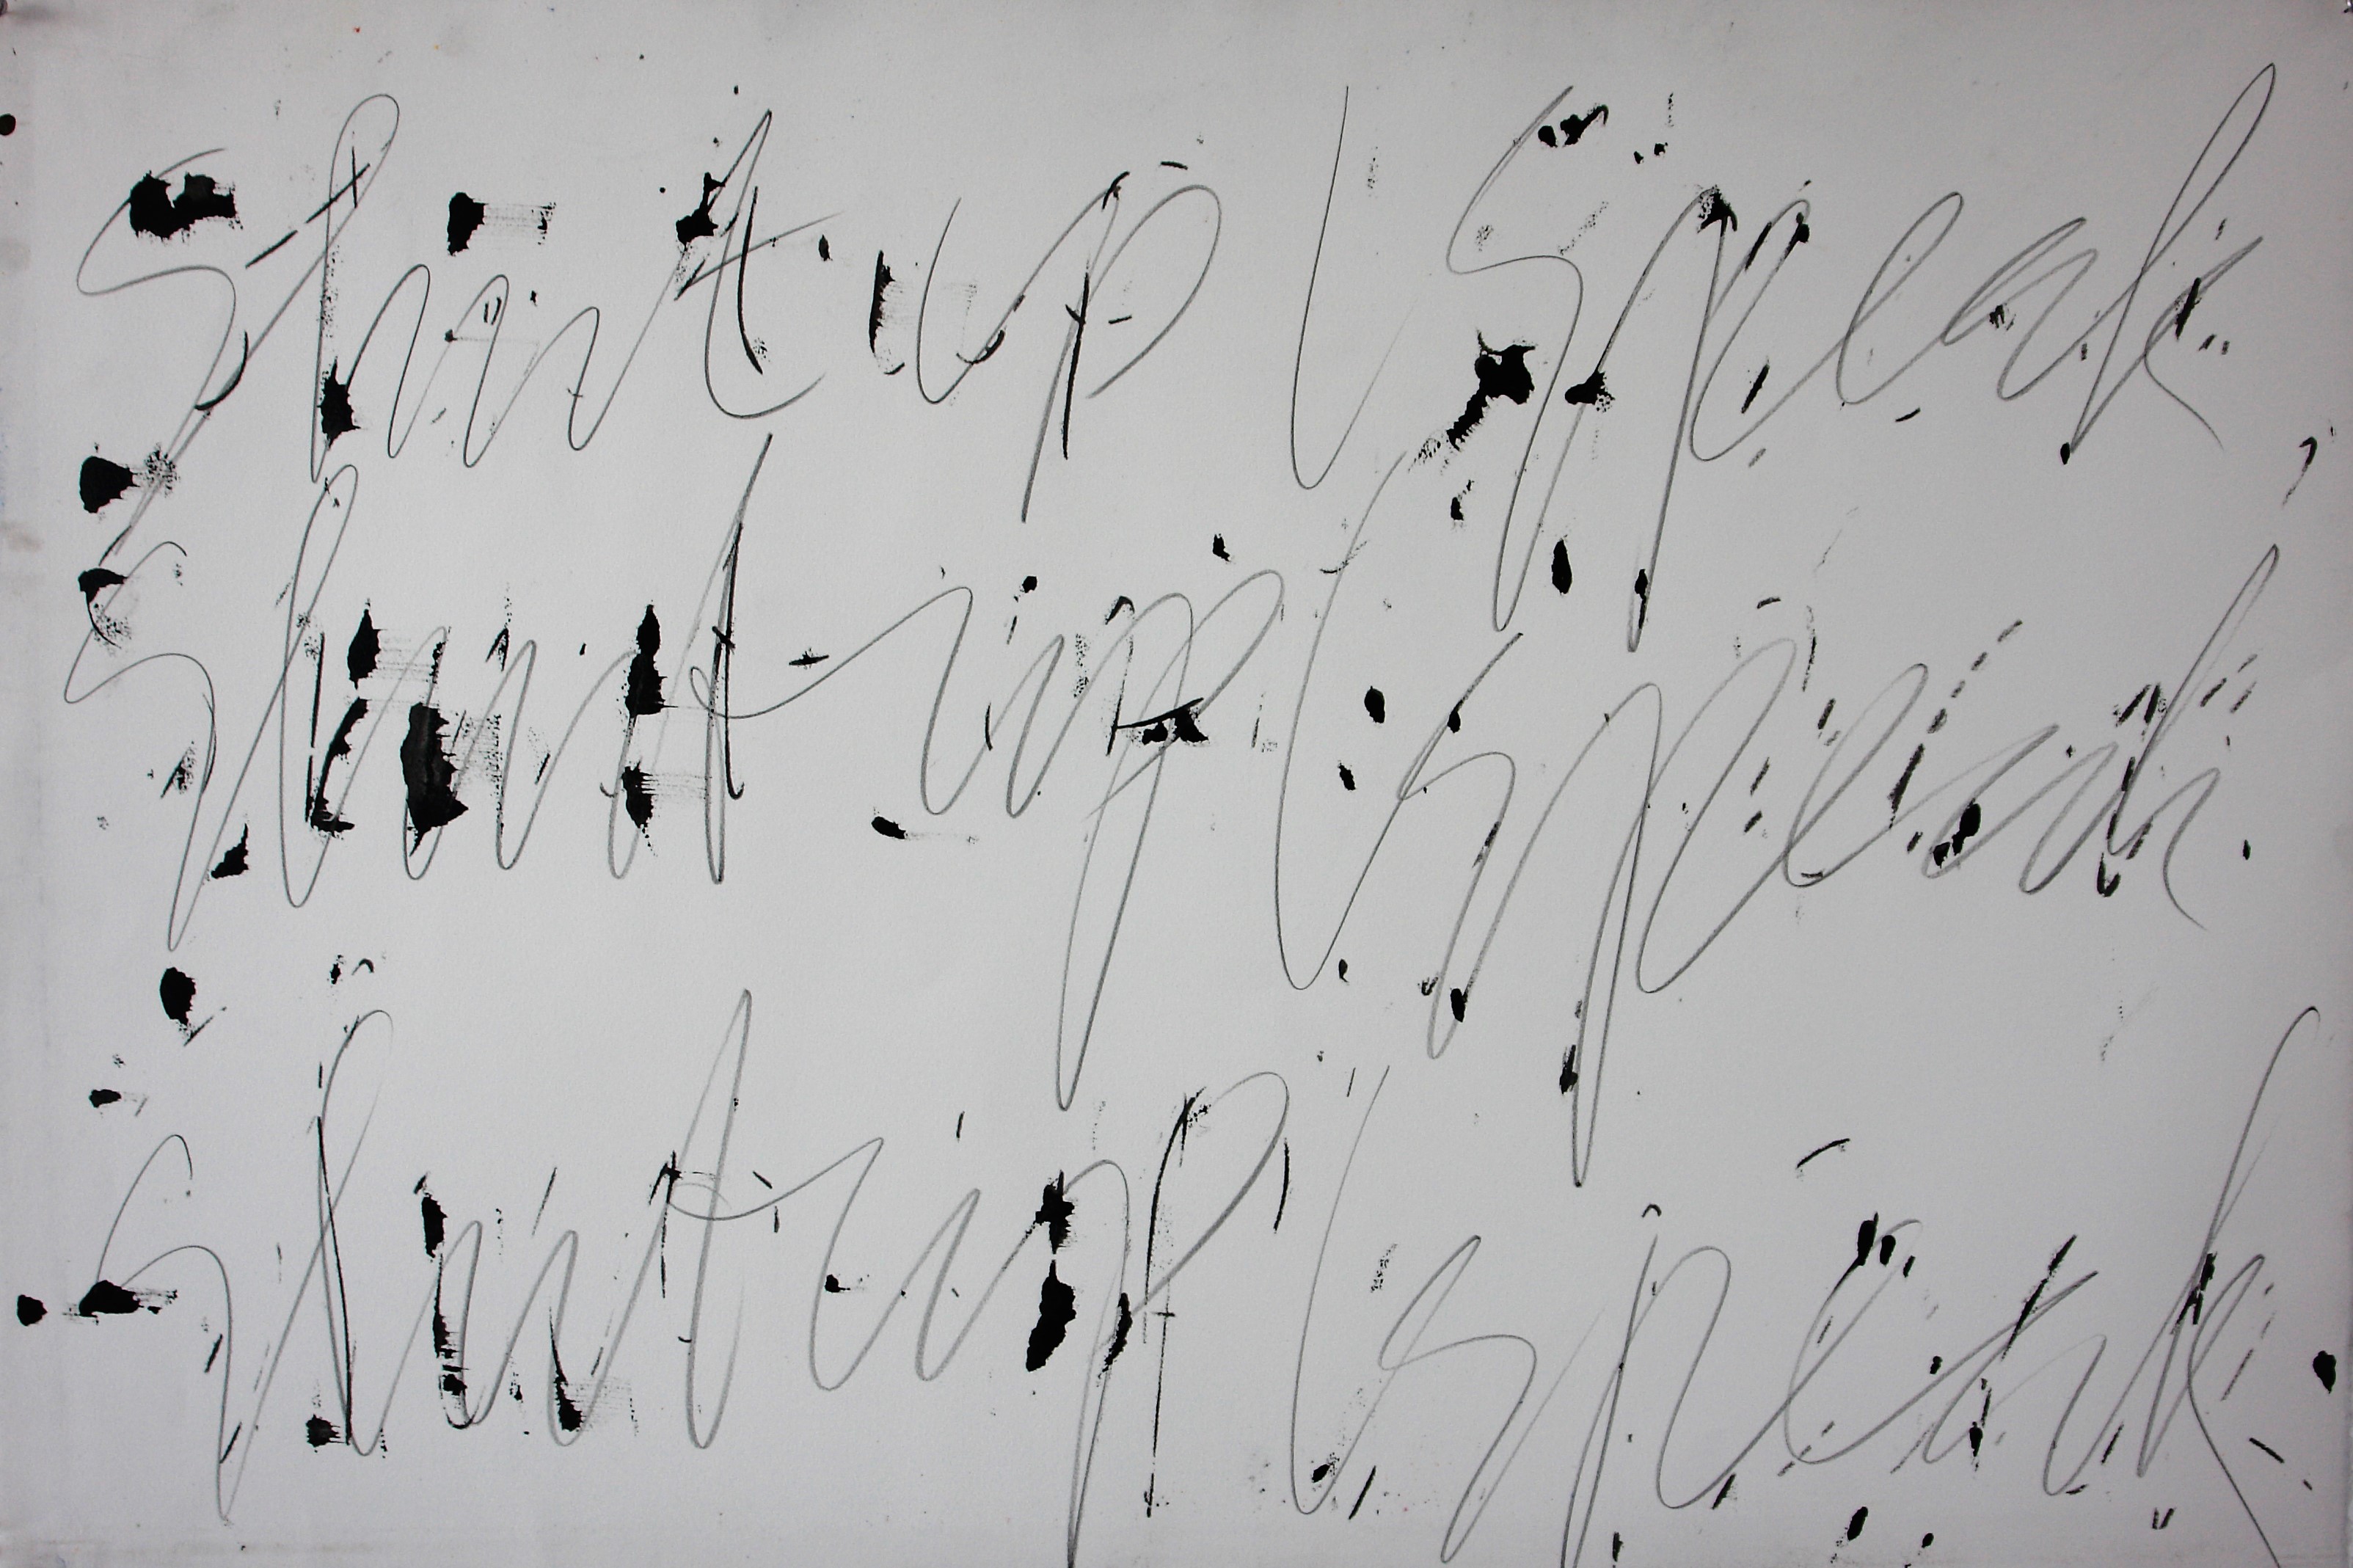 Shut up ( Speak
Shut up ( Speak
Shut up ( Speak